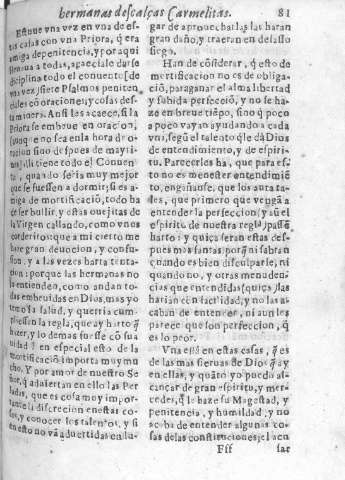 hermanas descalças Carmelitas. 81
Estuue vna vez en vna de es-
tas casas con vna Priora, q̃ era
amiga de penitencia, y por aqui
lleuaua a todas, apeciale darse
diciplina todo el conuento [de
vna vez] siete Psalmos peniten
ciales cõ oraciones, y cosas des-
ta manera. Ansi les acaece, si la
Priora se embeue en oracion,
(aunque no sea en la hora de o-
racion sino despues de mayti-
nes) alli tiene todo el Conuen-
to, quando seria muy mejor
que se fuessen a dormir; si es a-
miga de mortificació, todo ha
de ser bullir, y estas ouejitas de
la Virgen callando, como vnos
corderitos: que a mi cierto me
haze gran deuocion, y confu-
sion, y a las vezes harta tenta-
cion: porque las hermanas no
la entienden, como andan to-
das embeuidas en Dios, mas yo
temo la salud, y querria cum-
pliessen la regla, que ay harto q̃
hazer, y lo demas fuesse cõ sua
uidad: en especial esto de la
mortificació importa muy mu
cho. Y por amor de nuestro Se
ñor, q̃ aduiertan en ello las Per
ladas, que es cosa muy impor-
tante la discrecion en estas co-
sas, y conocer los talentos, y si
en esto no vã aduertidas en lu-
gar de aprouecharlas las haran
gran daño, y traeran en desasso
siego.
Han de cõsiderar, q̃ esto de
mortificacion no es de obliga-
ció, para ganar el alma libertad
y subida perfecció, y no se ha-
ze en breue tiẽpo, sino q̃ poco
a poco vayan ayudando a cada
vna, segũ el talento q̃ le dà Dios
de entendimiento, y de espiri-
tu. Parecerles ha, que para es-
to no es menester entendimiẽ
to, engañanse. que los aura ta-
les, que primero que vengã a
entender la perfeccion, y aũ el
espiritu de nuestra regla, passẽ
harto: y quiça seran estas des-
pues mas santas, porq̃ ni sabran
quando es bien disculparse, ni
quando no, y otras menuden-
cias que entendidas (quiça) las
harian con facilidad, y no las a-
caban de entender, ni aun les
parece que son perfeccion, q̃
es lo peor.
Vna està en estas casas, q̃ es
de las mas sieruas de Dios q̃ ay
en ellas, y quãto yo puedo al-
cançar de gran espiritu, y mer-
cedes, q̃ le haze su Magestad, y
penitencia, y humildad, y no
acaba de entender algunas co-
sas de las constituciones; el acu
Fff sar